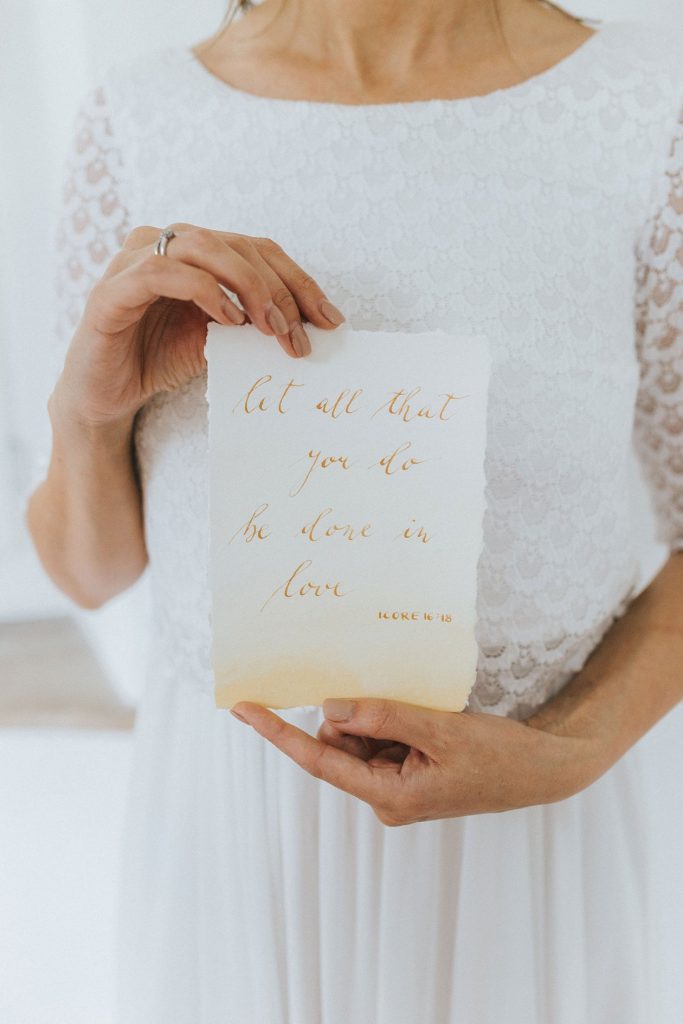 let all that
you do
be done in
love
1CORE 16:18